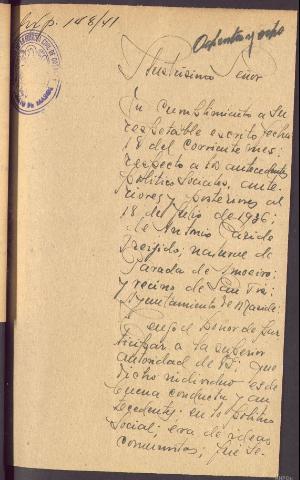 148/41
Ochenta y ocho
Ilustrísimo Señor
En cumplimiento a su
respetable escrito fecha
18 del corriente mes;
respecto a los antecedentes
politico Sociales, ante-
riores y posteriores al
18 de Julio de 1936;
de Antonio
natural de
Parada de Amoeiro;
y vecino de
Ayuntamiento de
Tengo el Honor de par
ticipar a la superior
autoridad de VS; que
dicho individuo es de
buena conducta y an
tecedentes; en lo politico
Social; era de ideas
comunistas; fué Se-